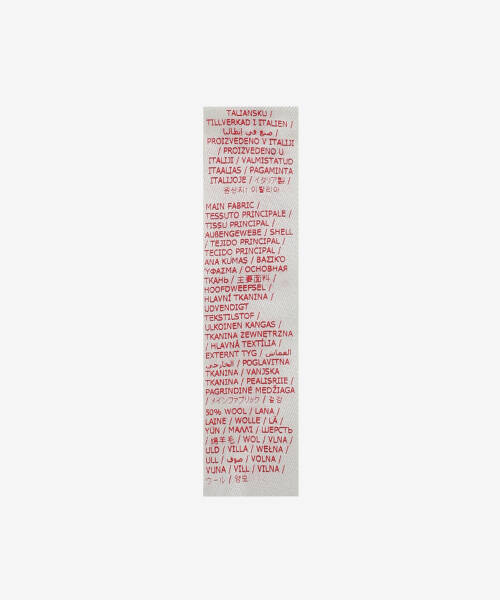 TALIANSKU /
TILLVERKAD I ITALIEN /
صنع في إيطاليا /
PROIZVEDENO V ITALIJI
/ PROIZVEDENO U
ITALIJI / VALMISTATUD
ITAALIAS / PAGAMINTA
ITALIJOJE / イタリア製 /
원산지: 이탈리아
MAIN FABRIC /
TESSUTO PRINCIPALE /
TISSU PRINCIPAL /
AUßENGEWEBE / SHELL
/ TEJIDO PRINCIPAL /
TECIDO PRINCIPAL /
ANA KUMAŞ / ΒΑΣΙΚΟ
ΥΦΑΣΜΑ / ОСНОВНАЯ
ТКАНЬ / 主要面料 /
HOOFDWEEFSEL /
HLAVNÍ TKANINA /
UDVENDIGT
TEKSTILSTOF /
ULKOINEN KANGAS /
TKANINA ZEWNETRZNA
/ HLAVNÁ TEXTÍLIA /
EXTERNT TYG / القماش
الخارجي / POGLAVITNA
TKANINA / VANJSKA
TKANINA / PEALISRIIE /
PAGRINDINĖ MEDŽIAGA
/ メインファブリック / 겉감
50% WOOL / LANA /
LAINE / WOLLE / LÃ /
YÜN / ΜΑΛΛΙ / ШЕРСТЬ
/ 绵羊毛 / WOL / VLNA /
ULD / VILLA / WEŁNA /
ULL / صوف / VOLNA /
VUNA / VILL / VILNA /
ウール / 양모